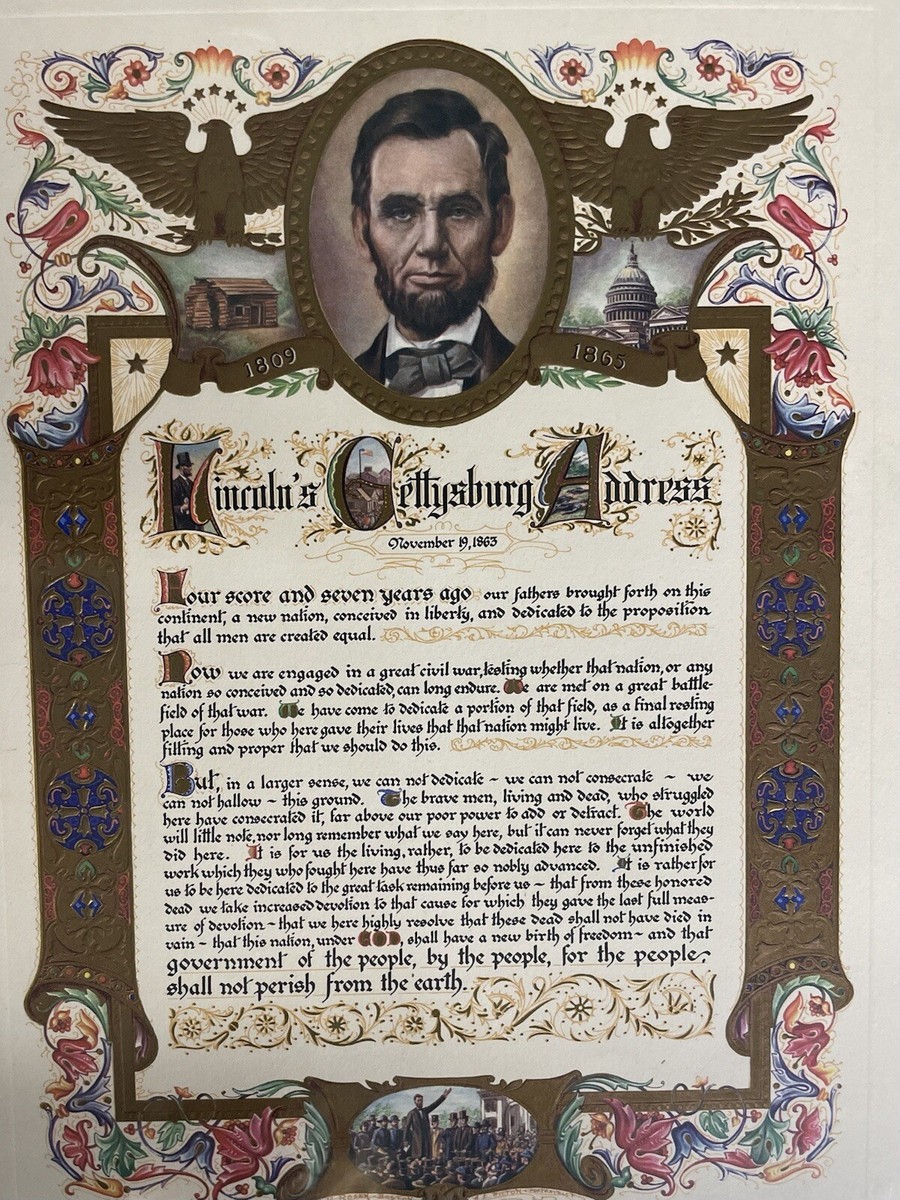 1809
1865
Lincoln's Gettysburg Address
November 19, 1863
Four score and seven years ago our fathers brought forth on this
continent, a new nation, conceived in liberty, and dedicated to the proposition
that all men are created equal.
Now we are engaged in a great civil war, testing whether that nation, or any
nation so conceived and so dedicated, can long endure. We are met on a great battle-
field of that war. We have come to dedicate a portion of that field, as a final resting
place for those who here gave their lives that that nation might live. It is altogether
fitting and proper that we should do this.
But, in a larger sense, we can not dedicate ~ we can not consecrate ~ we
can not hallow ~ this ground. The brave men, living and dead, who struggled
here have consecrated it, far above our poor power to add or detract. The world
will little note, nor long remember what we say here, but it can never forget what they
did here. It is for us the living, rather, to be dedicated here to the unfinished
work which they who fought here have thus far so nobly advanced. It is rather for
us to be here dedicated to the great task remaining before us ~ that from these honored
dead we take increased devotion to that cause for which they gave the last full meas-
ure of devotion ~ that we here highly resolve that these dead shall not have died in
vain ~ that this nation, under GOD, shall have a new birth of freedom ~ and that
government of the people, by the people, for the people,
shall not perish from the earth.